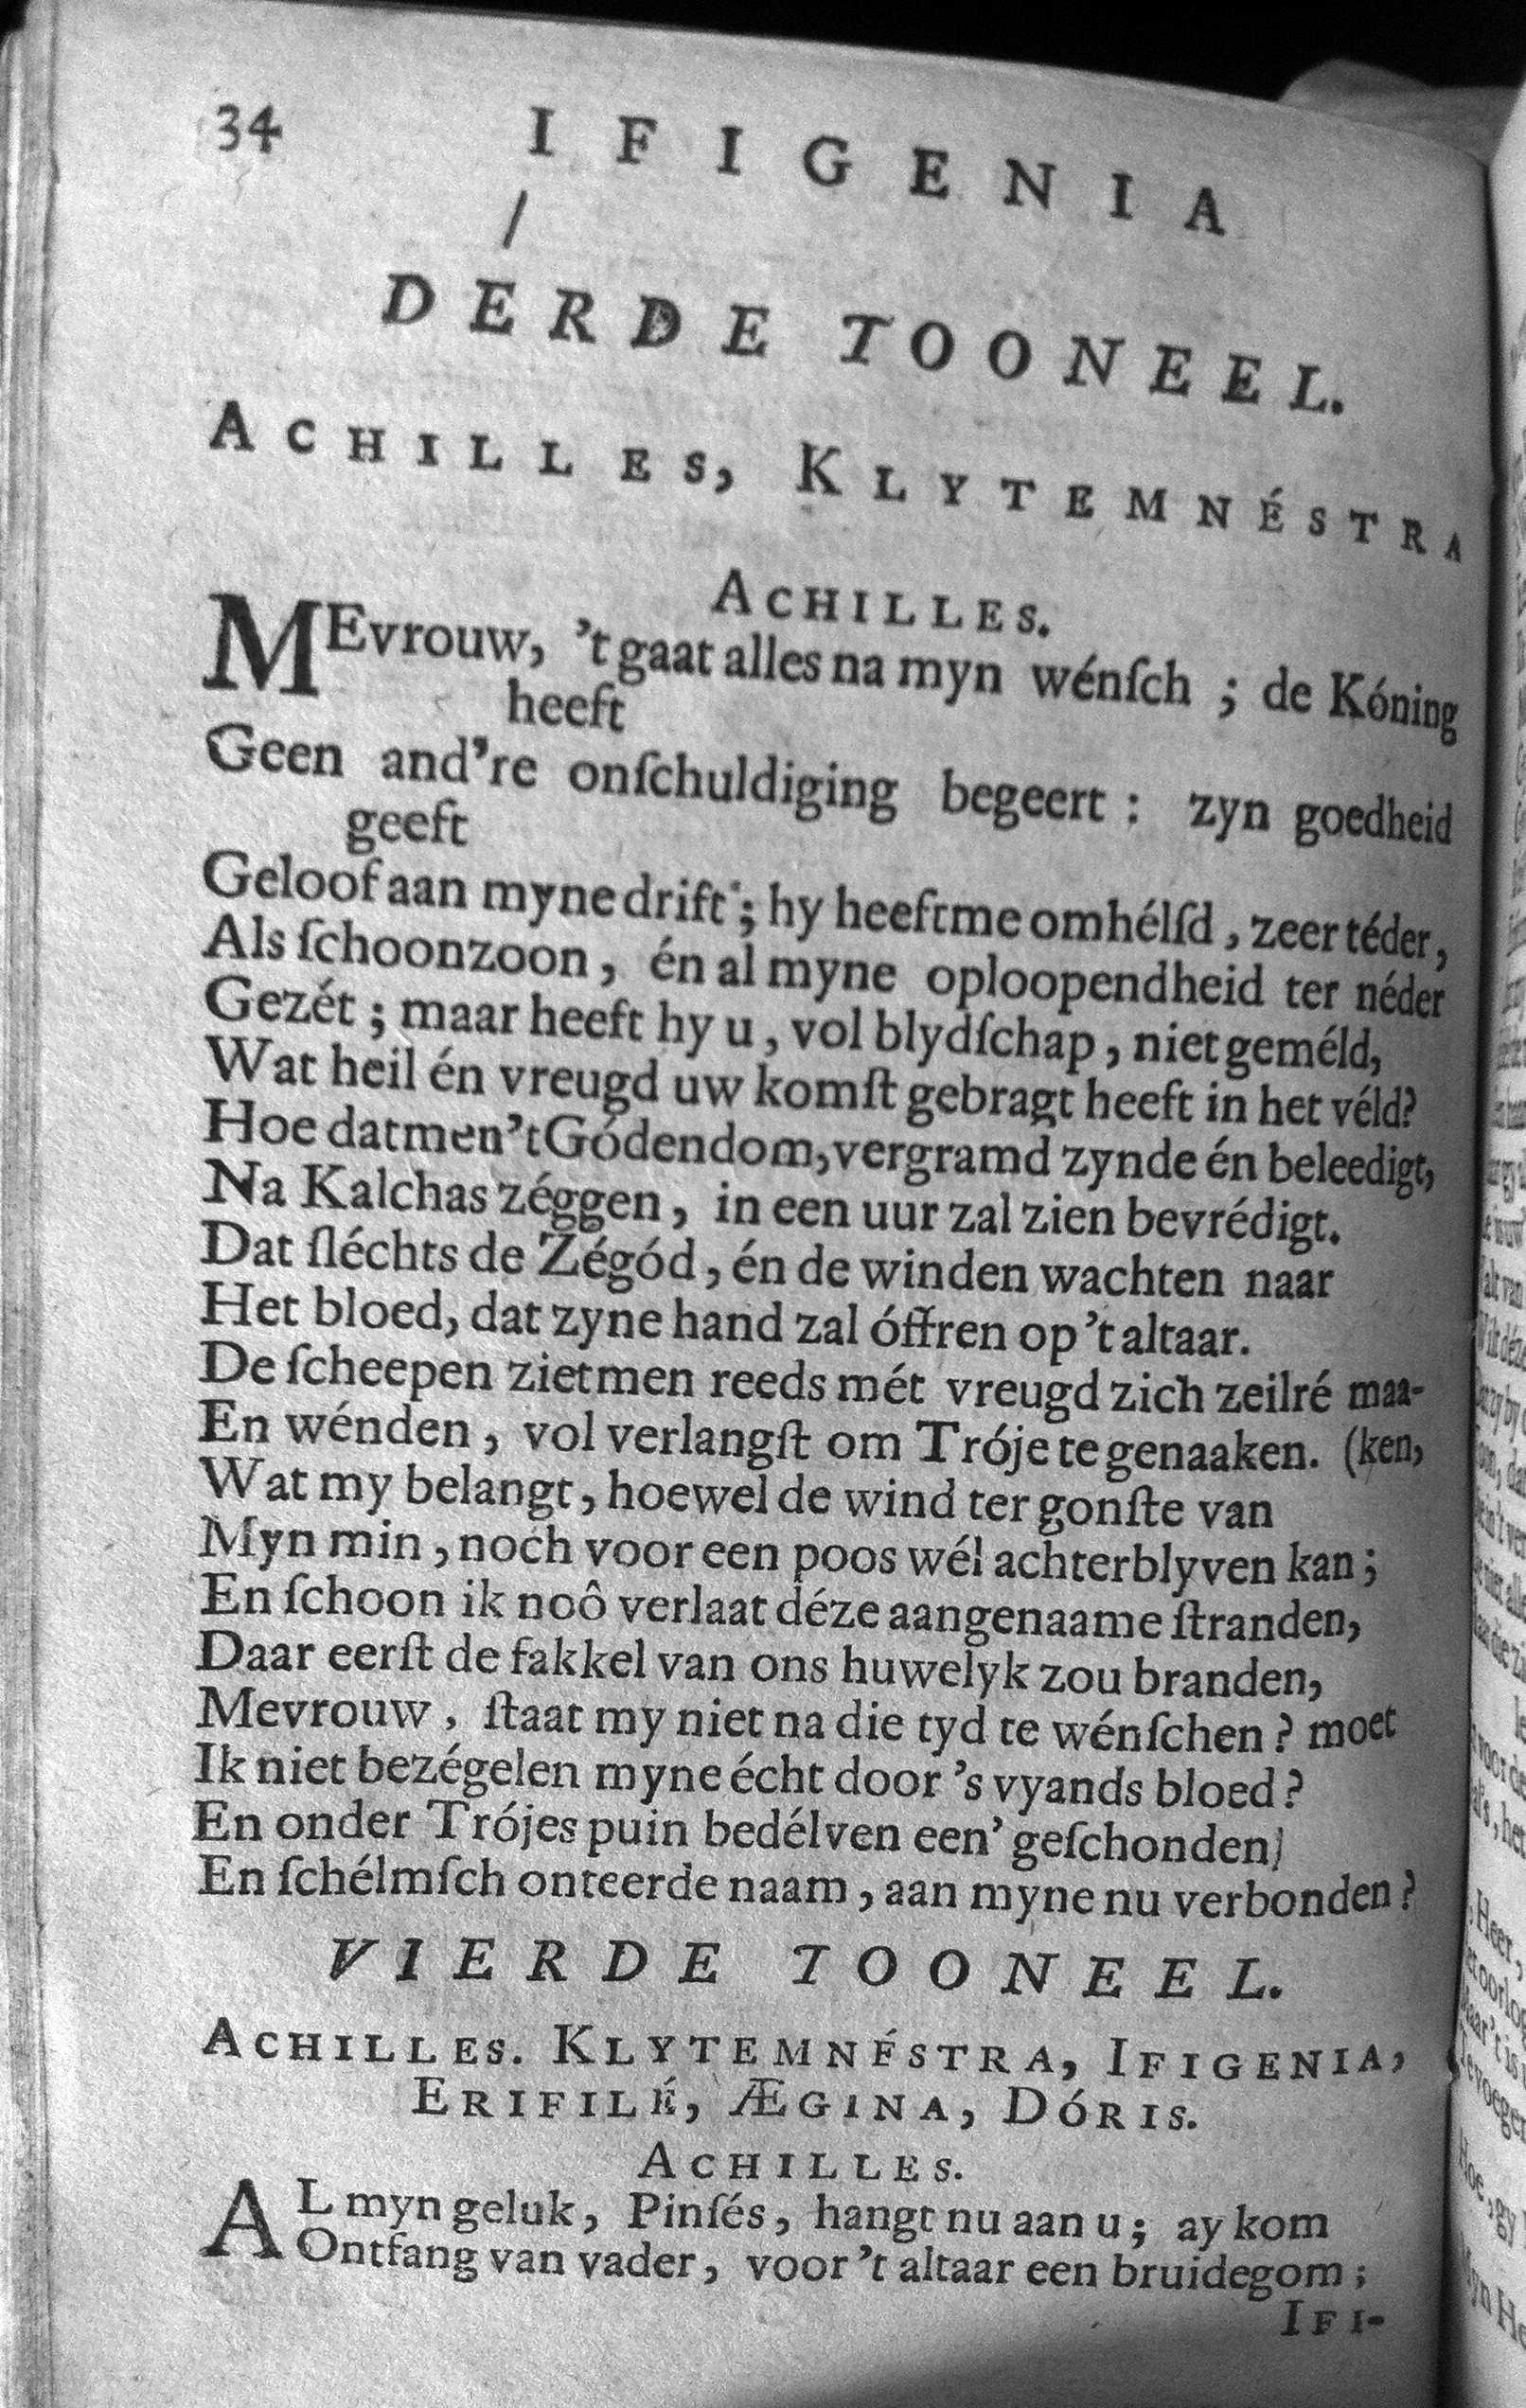 34 IFIGENIA
DERDE TOONEEL.
ACHILLES, KLYTEMNÉSTRA
ACHILLES.
MEvrouw, 't gaat alles na myn wénſch ; de Kóning
heeft
Geen and're onſchuldiging begeert : zyn goedheid
geeft
Geloof aan myne drift ; hy heeft me omhélſd , zeer téder ,
Als ſchoonzoon , én al myne oploopendheid ter néder
Gezét ; maar heeft hy u , vol blydſchap , niet geméld,
Wat heil én vreugd uw komſt gebragt heeft in het véld?
Hoe datmen 't Gódendom, vergramd zynde én beleedigt,
Na Kalchas zéggen , in een uur zal zien bevrédigt.
Dat ſléchts de Zégód , én de winden wachten naar
Het bloed, dat zyne hand zal óffren op 't altaar.
De ſcheepen zietmen reeds mét vreugd zich zeilré maa-
En wénden , vol verlangſt om Tróje te genaaken. (ken,
Wat my belangt , hoewel de wind ter gonſte van
Myn min , noch voor een poos wél achterblyven kan ;
En ſchoon ik noô verlaat déze aangenaame ſtranden,
Daar eerſt de fakkel van ons huwelyk zou branden,
Mevrouw , ſtaat my niet na die tyd te wénſchen ? moet
Ik niet bezégelen myne écht door 's vyands bloed ?
En onder Trójes puin bedélven een' geſchonden,
En ſchélmſch onteerde naam , aan myne nu verbonden ?
VIERDE TOONEEL.
ACHILLES. KLYTEMNÉSTRA, IFIGENIA,
ERIFILÉ, ÆGINA, DÓRIS.
ACHILLES.
AL myn geluk , Pinſés , hangt nu aan u ; ay kom
Ontfang van vader , voor 't altaar een bruidegom ;
IFI-